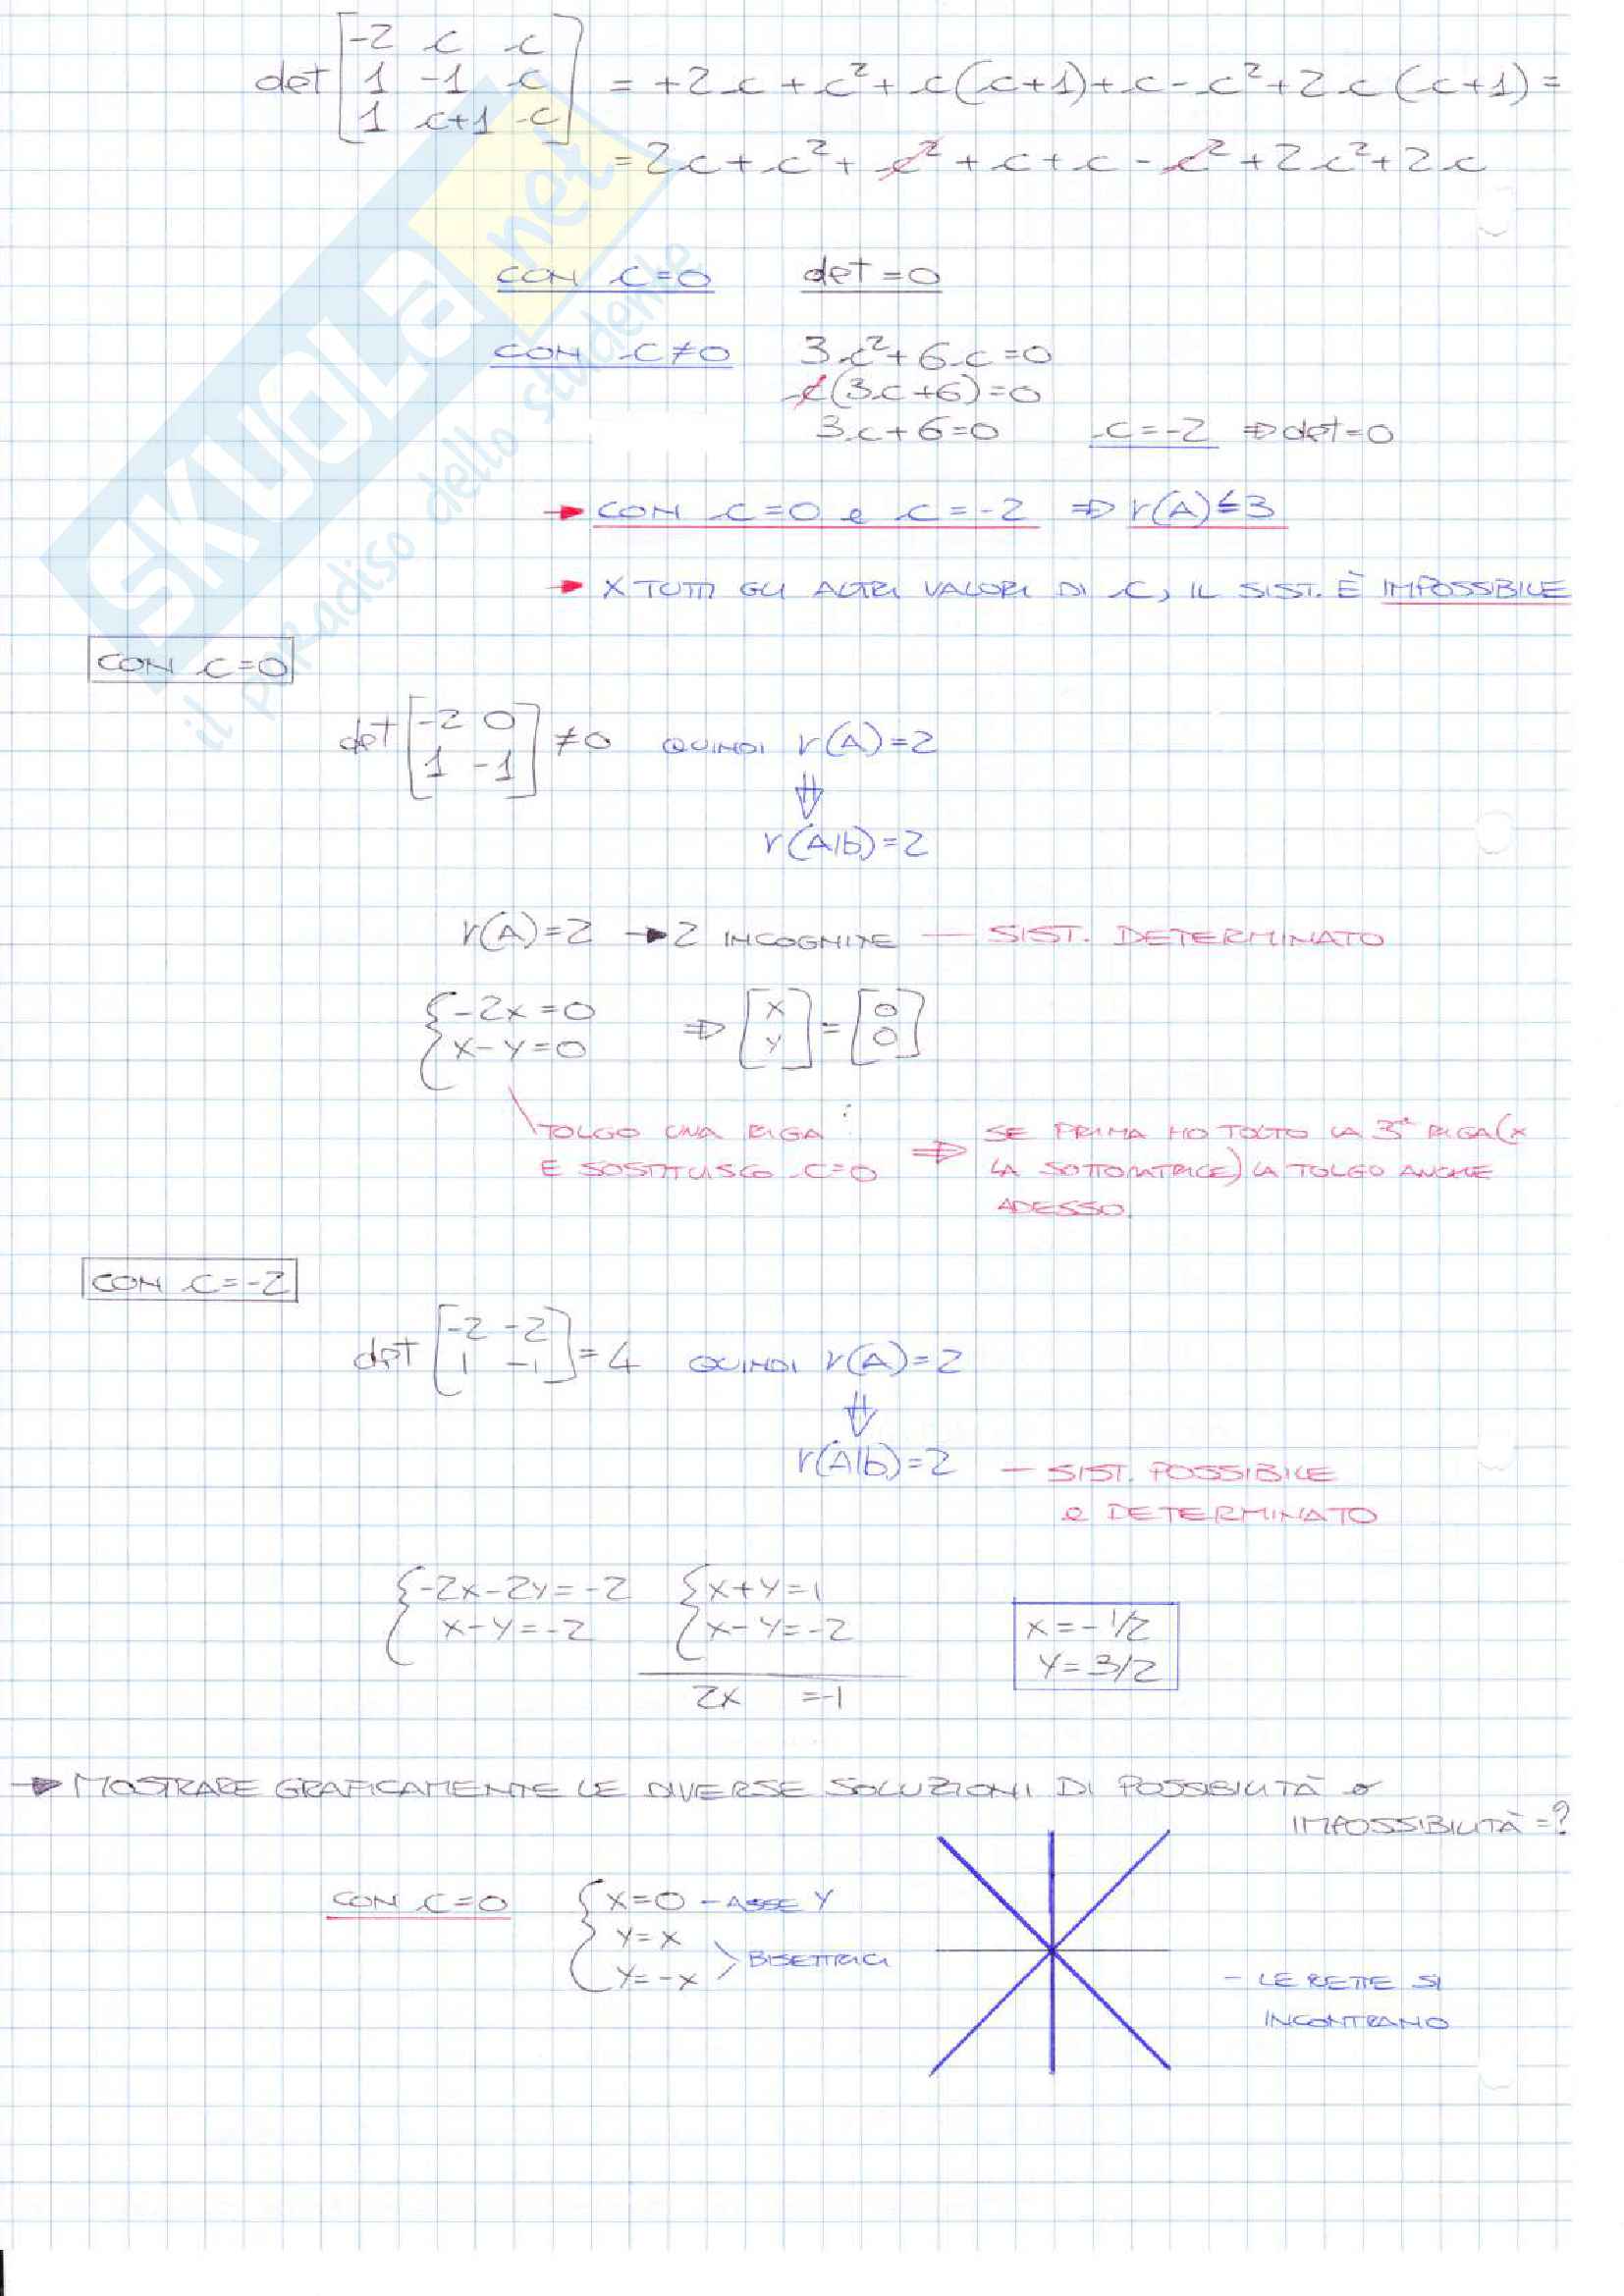 det [-2 c c
1 -1 c
1 c+1 -c] = +2c + c² + c(c+1) + c - c² + 2c(c+1) =
= 2c + c² + c² + c + c - c² + 2c² + 2c
CON c=0 det=0
CON c≠0 3c²+6c=0
c(3c+6)=0
3c+6=0 c=-2 ⇒ det=0
→ CON c=0 e c=-2 ⇒ r(A)≤3
→ X TUTTI GLI ALTRI VALORI DI c, IL SIST. È IMPOSSIBILE
CON c=0
det [-2 0
1 -1] ≠0 QUINDI r(A)=2
⇓
r(A|b)=2
r(A)=2 → 2 INCOGNITE — SIST. DETERMINATO
{-2x=0
x-y=0 ⇒ [x
y] = [0
0]
TOLGO UNA RIGA
E SOSTITUISCO c=0 ⇒ SE PRIMA HO TOLTO LA 3ª RIGA (X
LA SOTTOMATRICE) LA TOLGO ANCHE
ADESSO.
CON c=-2
det [-2 -2
1 -1] = 4 QUINDI r(A)=2
⇓
r(A|b)=2 — SIST. POSSIBILE
e DETERMINATO
{-2x-2y=-2 {x+y=1
x-y=-2 x-y=-2
2x =-1
x=-1/2
y=3/2
→ MOSTRARE GRAFICAMENTE LE DIVERSE SOLUZIONI DI POSSIBILITÀ o
IMPOSSIBILITÀ =?
CON c=0 {x=0 - ASSE Y
y=x
y=-x > BISETTRICI
- LE RETTE SI
INCONTRANO
SKUOLA.net
il paradiso dello studente